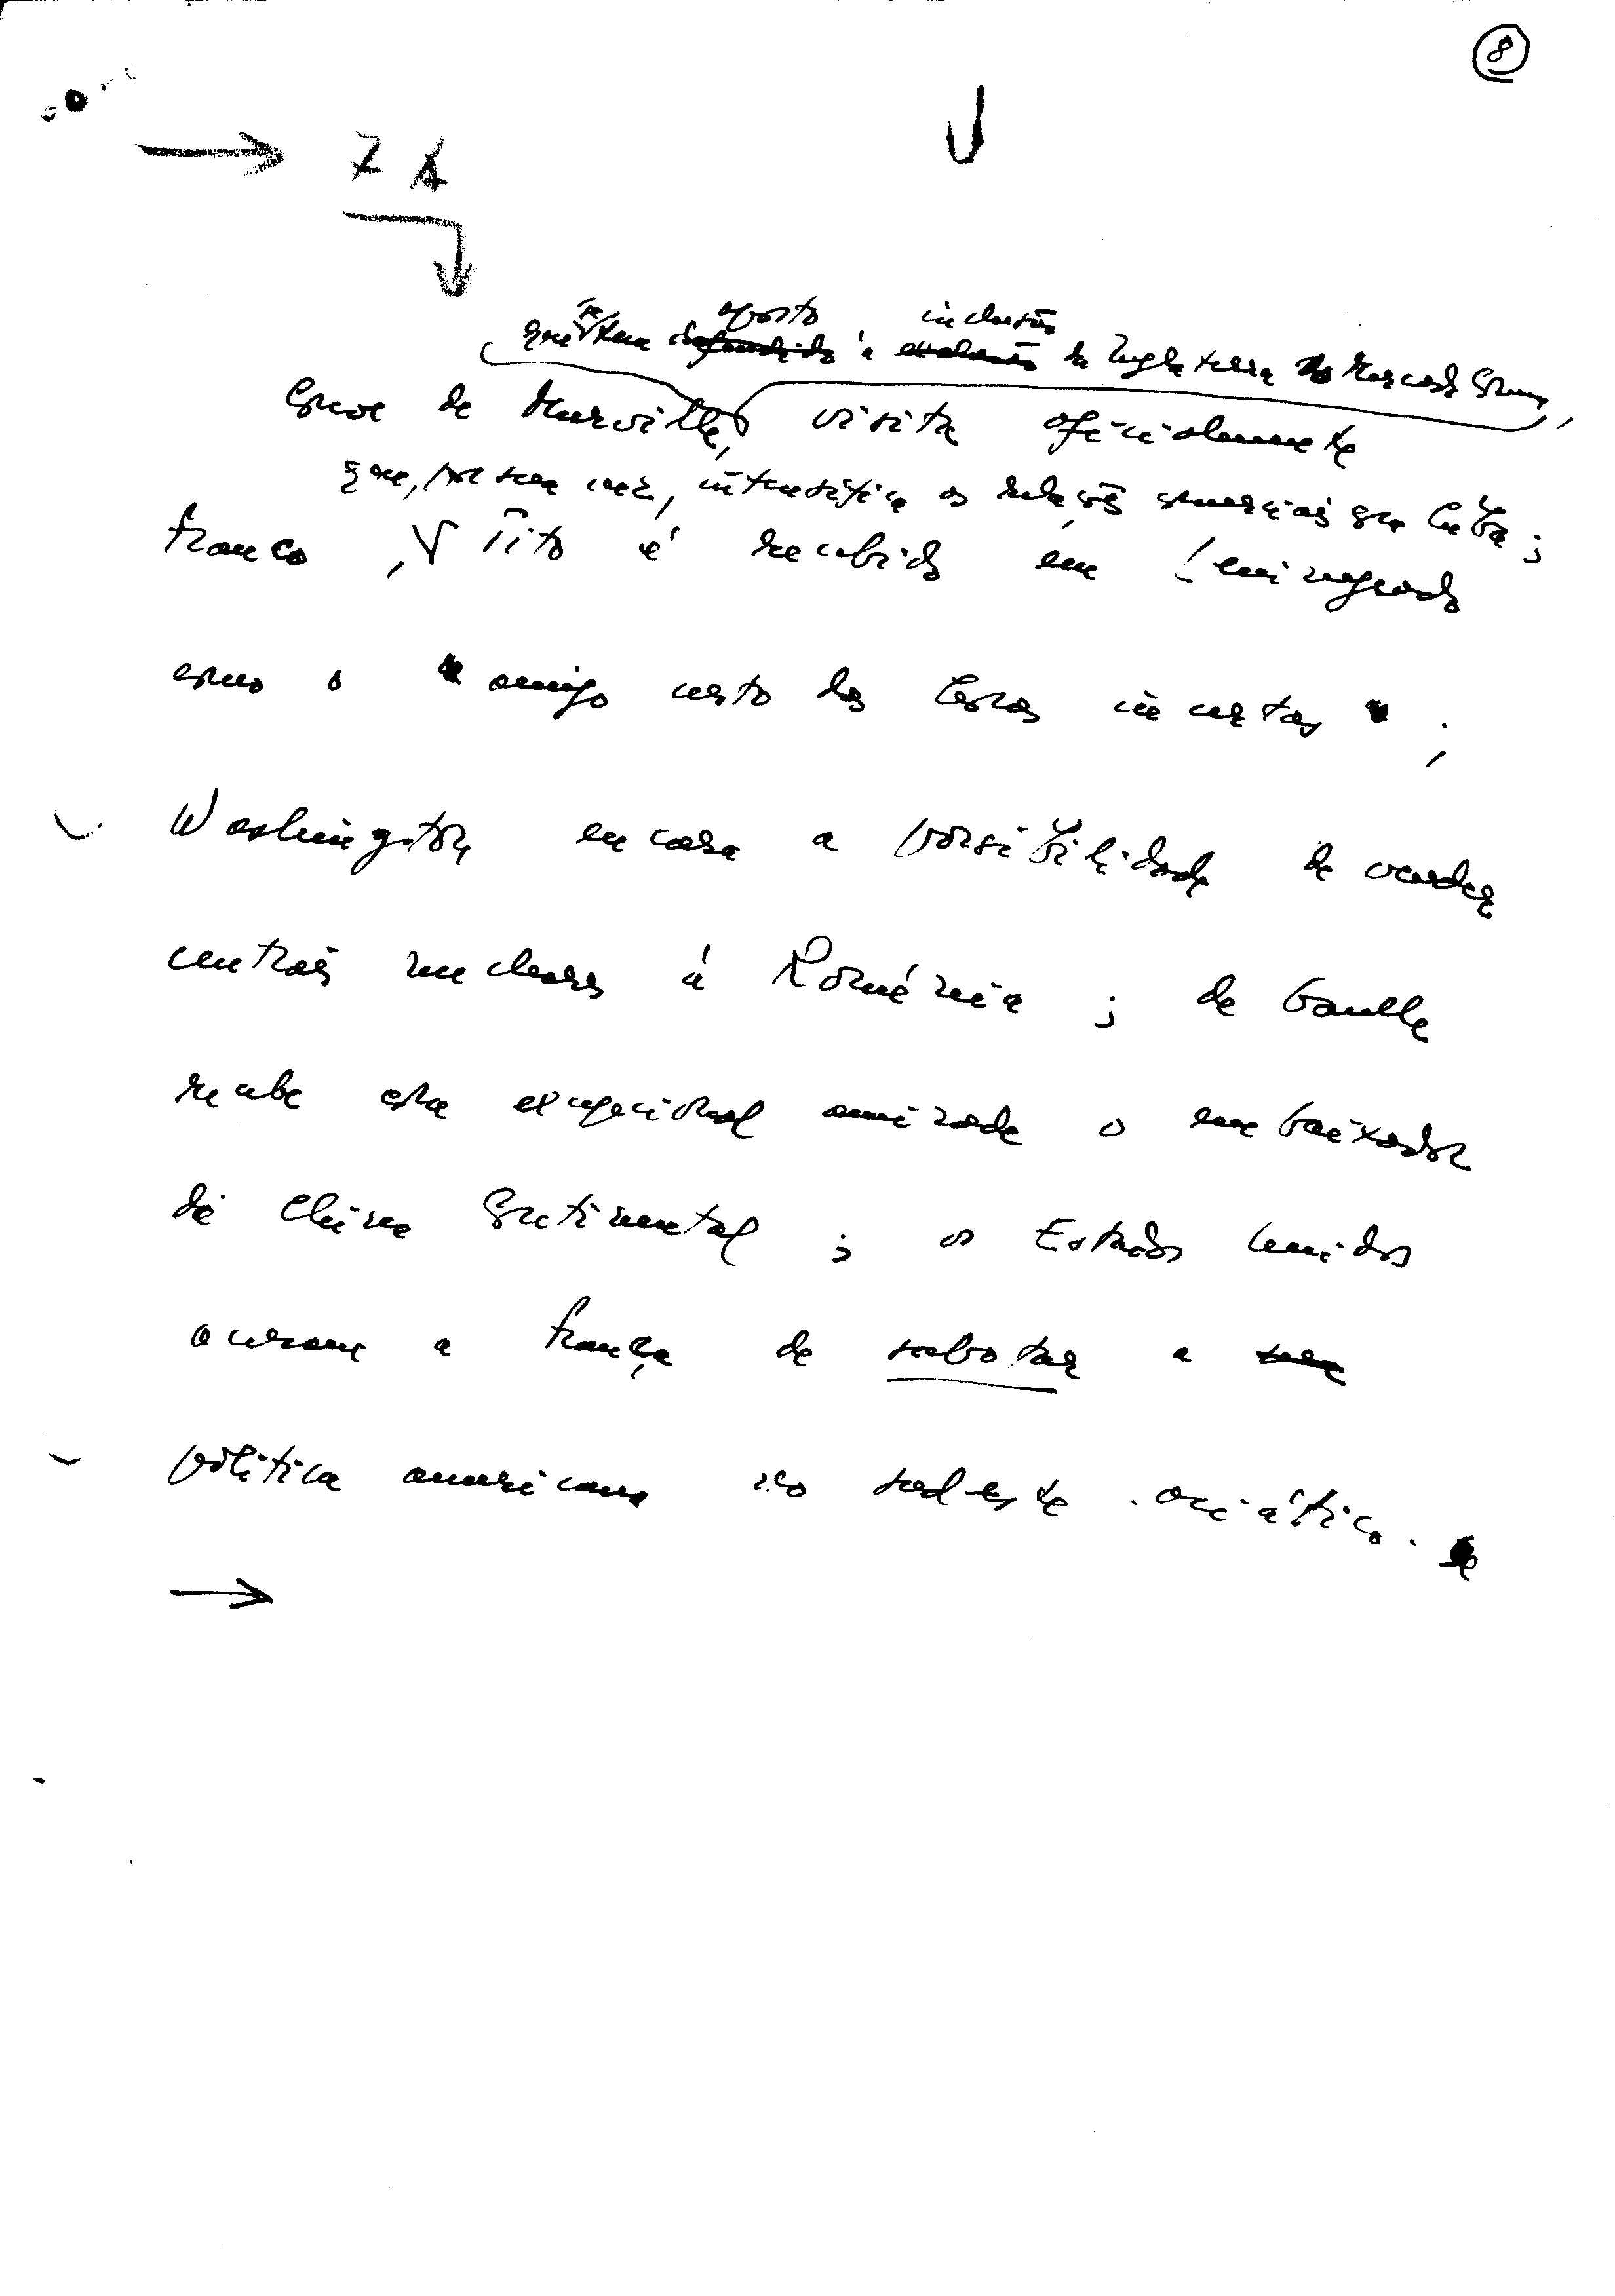 8
7 A
se oposto inclusão
que tem defendido à exclusão da Inglaterra no Mercado Comum,
Couve de Murville, visita oficialmente
que, por sua vez, intensifica as relações comerciais com Cuba;
Franco, Tito é recebido em Leninegrado
como o "amigo certo das horas incertas";
Washington encara a possibilidade de vender
centrais nucleares à Roménia; de Gaulle
recebe com excepcional amizade o embaixador
da China Continental; os Estados Unidos
acusam a França de sabotar a sua
política americana no sudeste asiático.